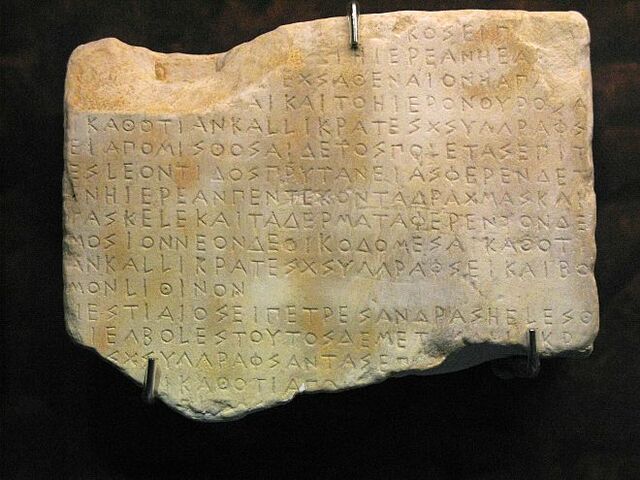 ΚΟΣΕΙΠ
ΙΗΙΕΡΕΑΝΗΕΑ
ΕΧΣΑΘΕΝΑΙΟΝΗΑΠΑ
ΑΙΚΑΙΤΟΗΙΕΡΟΝΘΥΡΟΣΑ
ΙΚΑΘΟΤΙΑΝΚΑΛΛΙΚΡΑΤΕΣΧΣΥΓΓΡΑΦΣ
ΕΙΑΠΟΜΙΣΘΟΣΑΙΔΕΤΟΣΠΟΛΕΤΑΣΕΠΙΤ
ΕΣΛΕΟΝΤΙΔΟΣΠΡΥΤΑΝΕΙΑΣΦΕΡΕΝΔΕΤ
ΕΝΗΙΕΡΕΑΝΠΕΝΤΕΚΟΝΤΑΔΡΑΧΜΑΣΚΑΙ
ΤΑΣΚΕΛΕΚΑΙΤΑΔΕΡΜΑΤΑΦΕΡΕΝΤΟΝΔΕ
ΜΟΣΙΟΝΝΕΟΝΔΕΟΙΚΟΔΟΜΕΣΑΙΚΑΘΟΤΙ
ΑΝΚΑΛΛΙΚΡΑΤΕΣΧΣΥΓΓΡΑΦΣΕΙΚΑΙΒΟ
ΜΟΝΛΙΘΙΝΟΝ
ΗΕΣΤΙΑΙΟΣΕΙΠΕΤΡΕΣΑΝΔΡΑΣΗΕΛΕΣΘ
ΑΙΕΓΒΟΛΕΣΤΟΥΤΟΣΔΕΜΕΤ ΚΡ
ΕΣΧΣΥΓΓΡΑΦΣΑΝΤΑΣΕΠ
ΙΚΑΘΟΤΙΑΠΟ